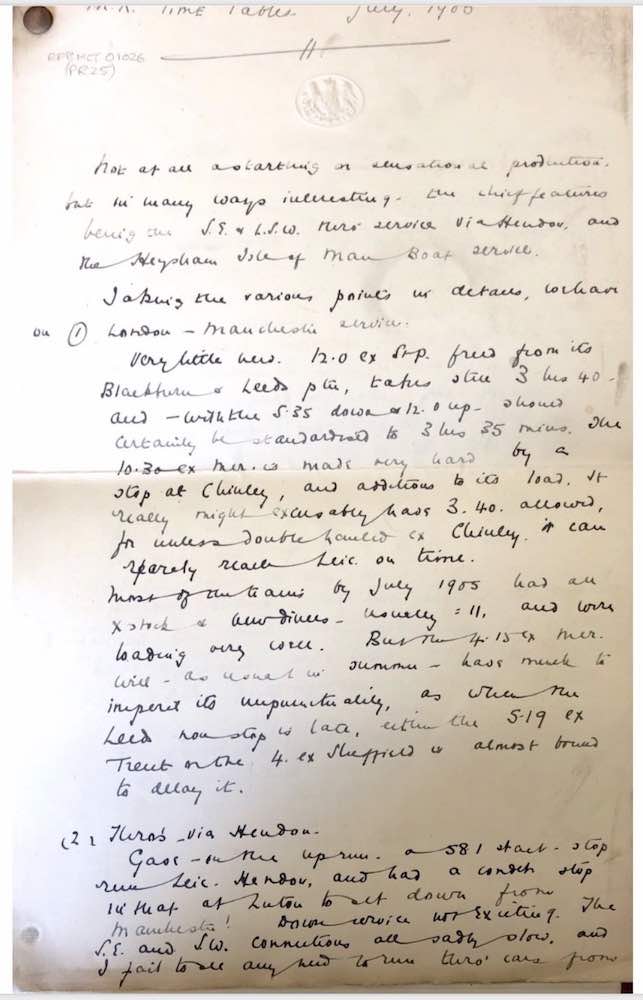 M.R. Time Tables July, 1905
RFBMCT 01026
(PR25)
Not at all a startling or sensational production.
but in many ways interesting - the chief features
being the S.E. & L.S.W. thro' service via Hendon, and
the Heysham Isle of Man Boat service.
Taking the various points in detail, we have
on (1) London - Manchester service.
Very little new. 12.0 ex St.P. freed from its
Blackburn & Leeds ptn, takes still 3 hrs 40 -
and - with the 5.35 down & 12.0 up - should
certainly be standardised to 3 hrs 35 mins. The
10.30 ex Mcr. is made very hard by a
stop at Chinley, and additions to its load. It
really might excusably have 3.40. allowed,
for unless double hauled ex Chinley it can
rarely reach Leic. on time.
Most of the trains by July 1905 had all
stock & new diners - usually = 11, and were
loading very well. But the 4.15 ex Mcr.
will - as usual in summer - have much to
imperil its unpunctuality, as when the
Leeds non stop is late, either the 5.19 ex
Trent or the 4. ex Sheffield is almost bound
to delay it.
(2) Thro's - via Hendon.
Gave - on the up run - a 58.1 start - stop
run Leic. Hendon, and had a condtl stop
in that at Luton to set down from
Manchester! Down service not exciting. The
S.E. and S.W. connections all sadly slow, and
I fail to see any need to run thro' cars from